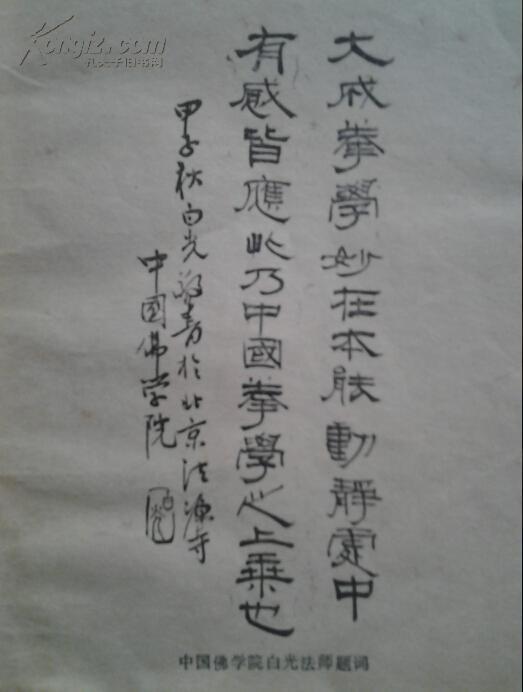 大成拳學妙在本能動靜處中
有感皆應此乃中國拳學之上乘也
甲子秋白光敬書於北京法源寺
中國佛学院
中国佛学院白光法师题词
Kongfz.com
孔夫子旧书网